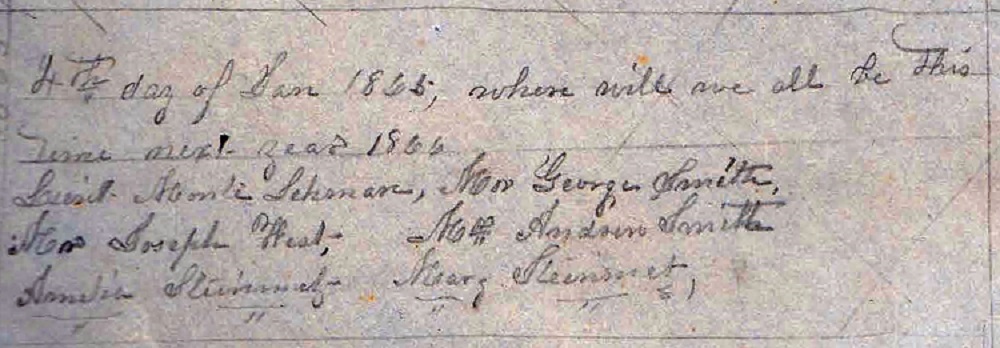 4th day of Jan 1865, where will we all be this
time next year 1866
Lieut Monte Lehman, Mr George Smith,
Mr Joseph West, Mr Andrew Smith
Amelia Steinmetz Mary Steinmetz,